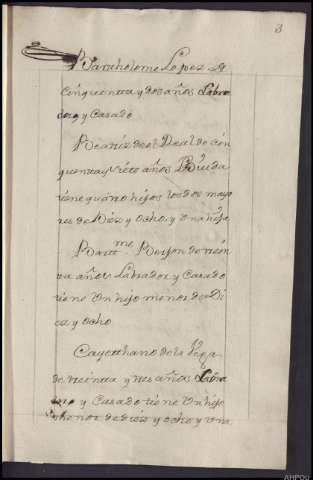 3
Bartholome Lopez de
cinquenta y dos años Labra
dor, y Casado
Beatriz del Deal de cin
quenta y siete años Biuda
tiene quatro hijos los dos mayo
res de Diez y ocho, y una hija
Bartme. de trein
ta años Labrador y Casado
tiene Un hijo menor de Di
ez y ocho
Cayethano de la Vega
de treinta y tres años Labra
dor y Casado tiene Un hijo
menor de diez y ocho y una
AHPOU